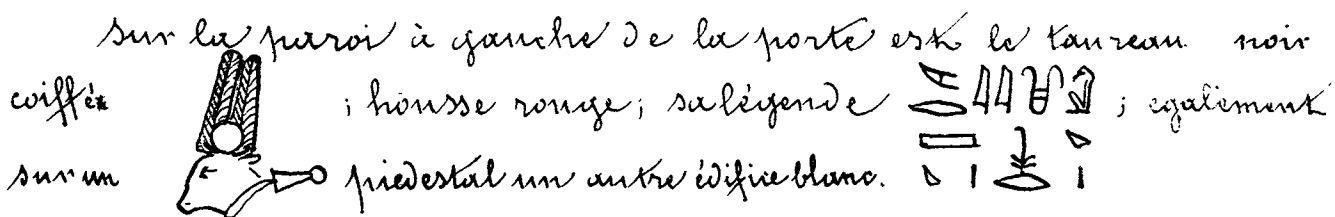 Sur la paroi à gauche de la porte est le taureau noir
coiffé ; housse rouge; sa légende ; egalement
sur un piedestal un autre édifice blanc.